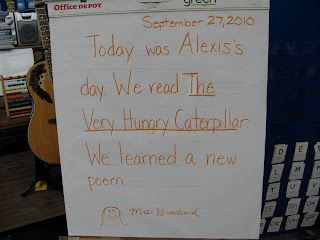 Office DEPOT
green
September 27, 2010
Today was Alexis's
day. We read The
Very Hungry Caterpillar
We learned a new
poem.
D E
L M
T U